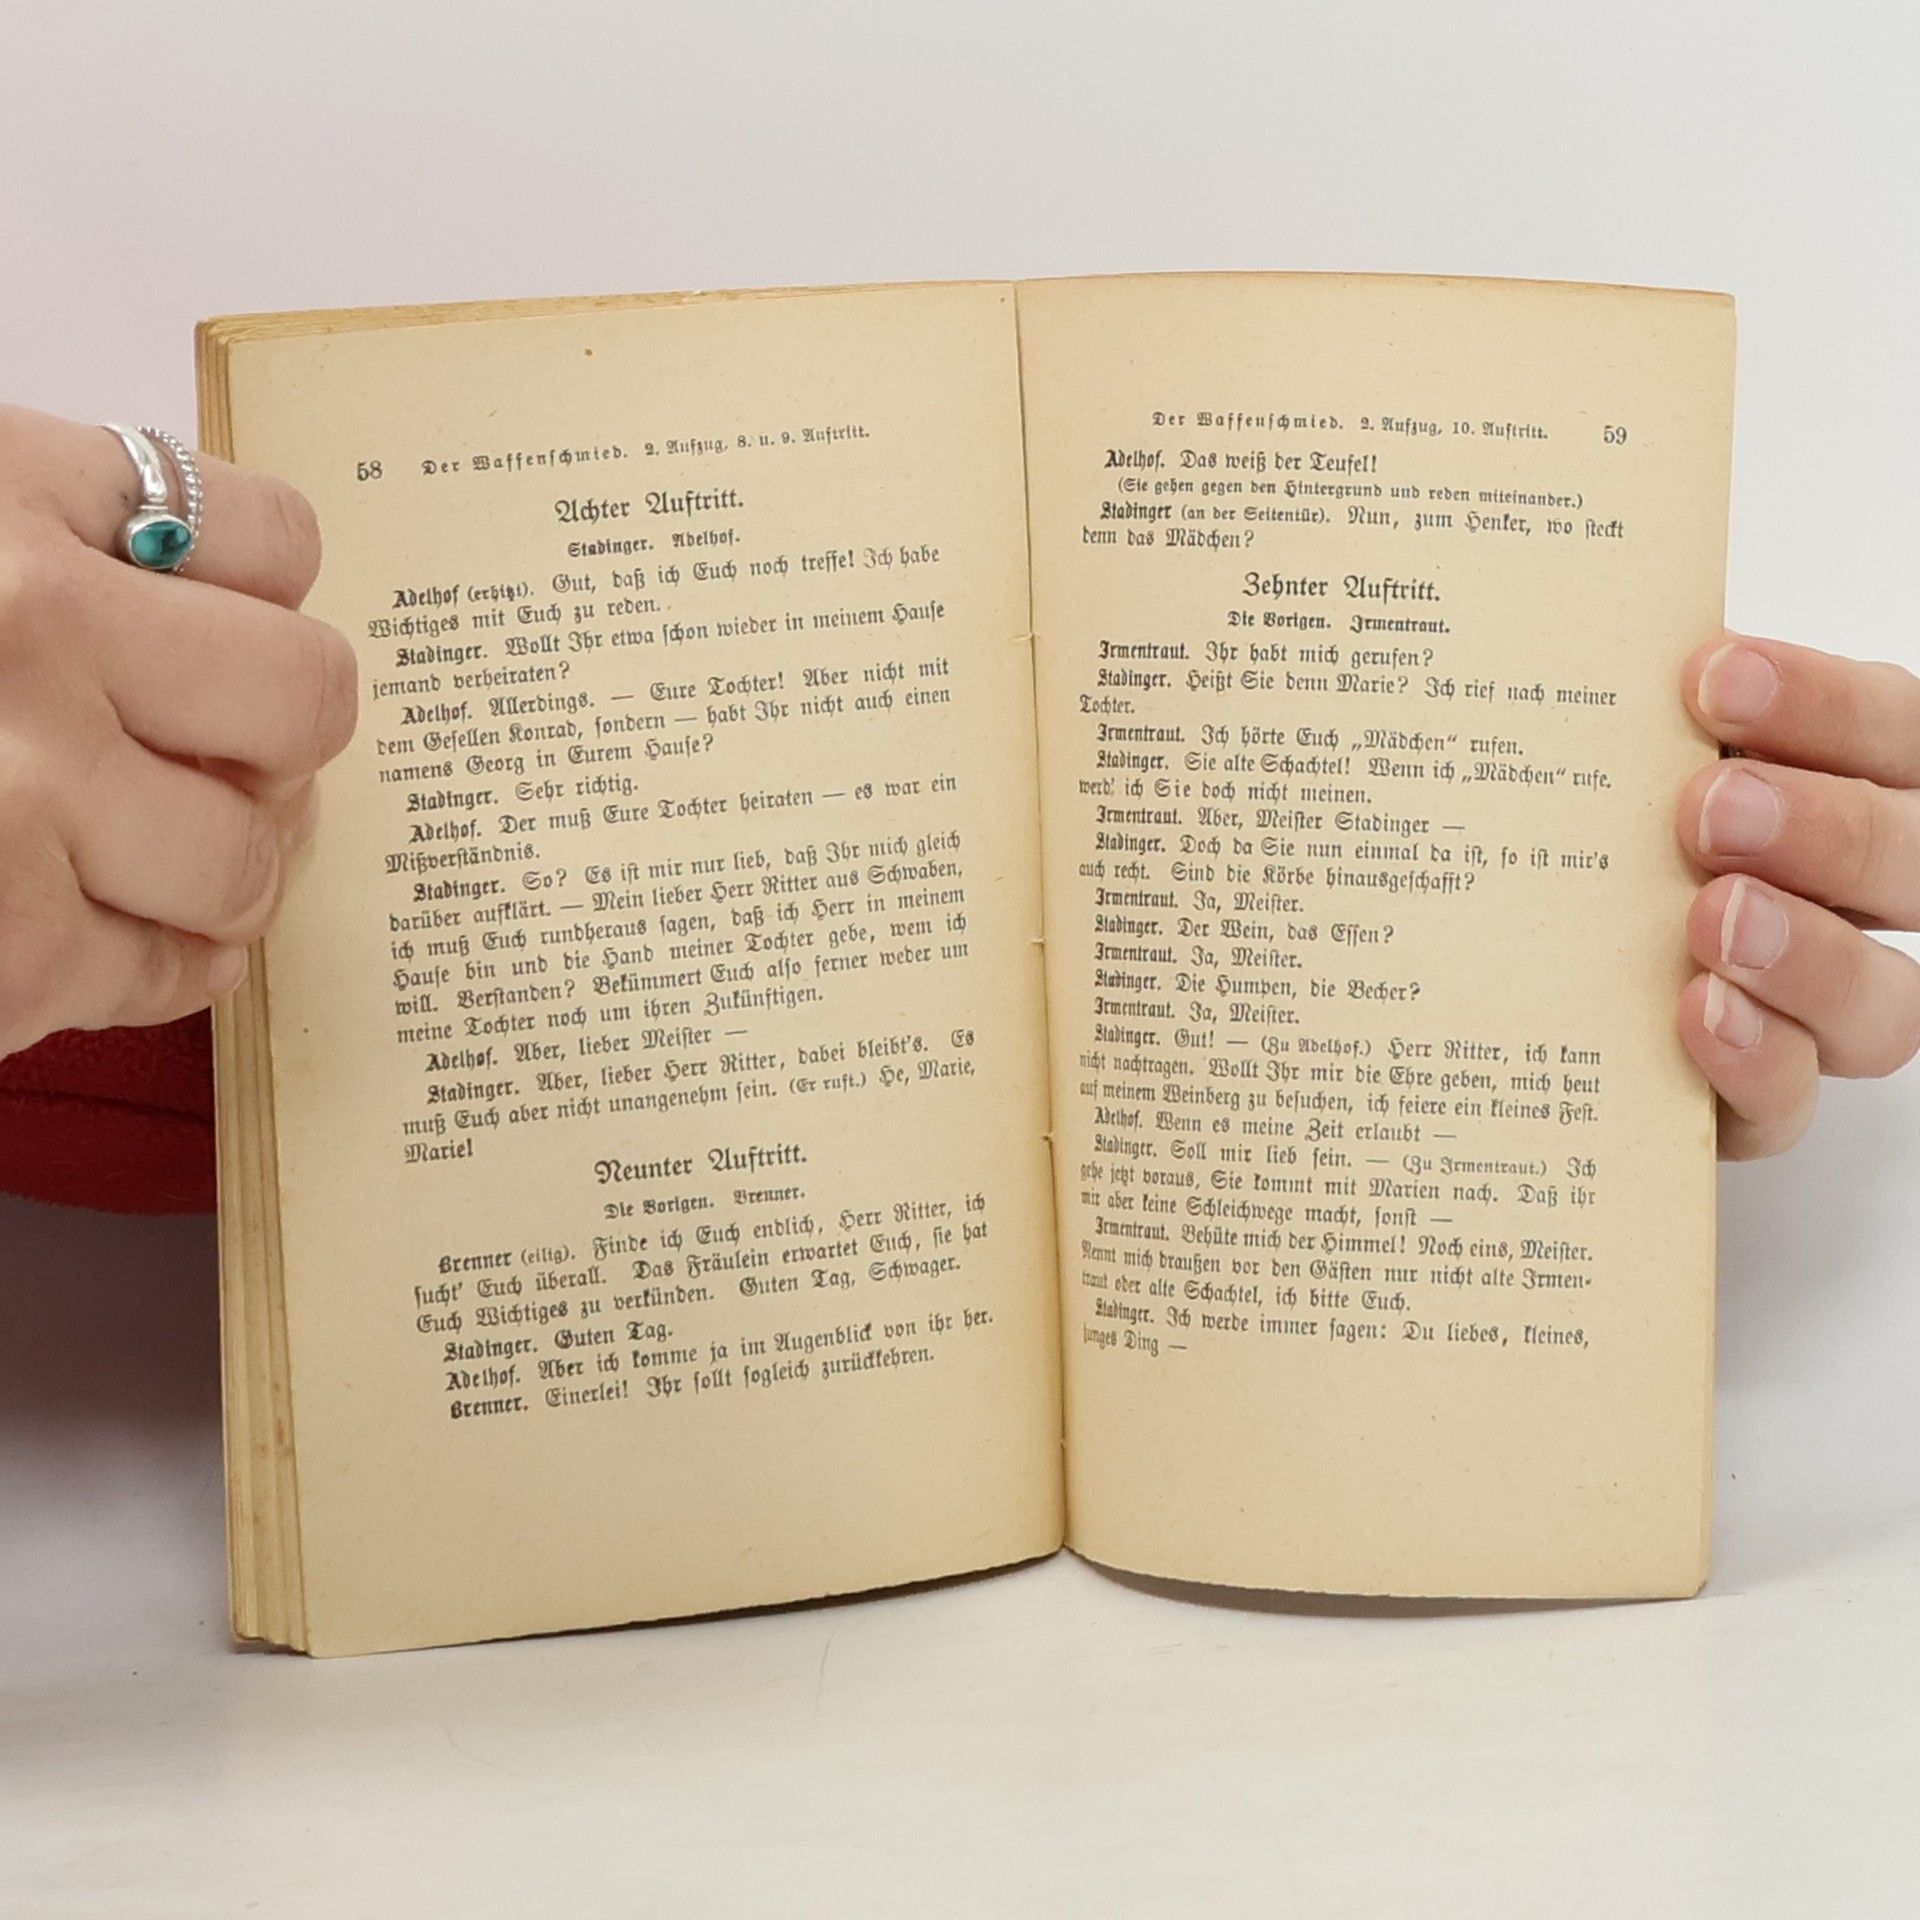 58 Der Waffenschmied. 2. Aufzug, 8. u. 9. Auftritt.
Achter Auftritt.
Stadinger. Adelhof.
Adelhof (erhitzt). Gut, daß ich Euch noch treffe! Ich habe
Wichtiges mit Euch zu reden.
Stadinger. Wollt Ihr etwa schon wieder in meinem Hause
jemand verheiraten?
Adelhof. Allerdings. — Eure Tochter! Aber nicht mit
dem Gesellen Konrad, sondern — habt Ihr nicht auch einen
namens Georg in Eurem Hause?
Stadinger. Sehr richtig.
Adelhof. Der muß Eure Tochter heiraten — es war ein
Mißverständnis.
Stadinger. So? Es ist mir nur lieb, daß Ihr mich gleich
darüber aufklärt. — Mein lieber Herr Ritter aus Schwaben,
ich muß Euch rundheraus sagen, daß ich Herr in meinem
Hause bin und die Hand meiner Tochter gebe, wem ich
will. Verstanden? Bekümmert Euch also ferner weder um
meine Tochter noch um ihren Zukünftigen.
Adelhof. Aber, lieber Meister —
Stadinger. Aber, lieber Herr Ritter, dabei bleibt's. Es
muß Euch aber nicht unangenehm sein. (Er ruft.) He, Marie,
Marie!
Neunter Auftritt.
Die Vorigen. Brenner.
Brenner (eilig). Finde ich Euch endlich, Herr Ritter, ich
sucht' Euch überall. Das Fräulein erwartet Euch, sie hat
Euch Wichtiges zu verkünden. Guten Tag, Schwager.
Stadinger. Guten Tag.
Adelhof. Aber ich komme ja im Augenblick von ihr her.
Brenner. Einerlei! Ihr sollt sogleich zurückkehren.
Der Waffenschmied. 2. Aufzug, 10. Auftritt. 59
Adelhof. Das weiß der Teufel!
(Sie gehen gegen den Hintergrund und reden miteinander.)
Stadinger (an der Seitentür). Nun, zum Henker, wo steckt
denn das Mädchen?
Zehnter Auftritt.
Die Vorigen. Irmentraut.
Irmentraut. Ihr habt mich gerufen?
Stadinger. Heißt Sie denn Marie? Ich rief nach meiner
Tochter.
Irmentraut. Ich hörte Euch „Mädchen“ rufen.
Stadinger. Sie alte Schachtel! Wenn ich „Mädchen“ rufe,
werd' ich Sie doch nicht meinen.
Irmentraut. Aber, Meister Stadinger —
Stadinger. Doch da Sie nun einmal da ist, so ist mir's
auch recht. Sind die Körbe hinausgeschafft?
Irmentraut. Ja, Meister.
Stadinger. Der Wein, das Essen?
Irmentraut. Ja, Meister.
Stadinger. Die Humpen, die Becher?
Irmentraut. Ja, Meister.
Stadinger. Gut! — (Zu Adelhof.) Herr Ritter, ich kann
nicht nachtragen. Wollt Ihr mir die Ehre geben, mich heut
auf meinem Weinberg zu besuchen, ich feiere ein kleines Fest.
Adelhof. Wenn es meine Zeit erlaubt —
Stadinger. Soll mir lieb sein. — (Zu Irmentraut.) Ich
gehe jetzt voraus, Sie kommt mit Marien nach. Daß ihr
mir aber keine Schleichwege macht, sonst —
Irmentraut. Behüte mich der Himmel! Noch eins, Meister.
Nennt mich draußen vor den Gästen nur nicht alte Irmen-
traut oder alte Schachtel, ich bitte Euch.
Stadinger. Ich werde immer sagen: Du liebes, kleines,
junges Ding —